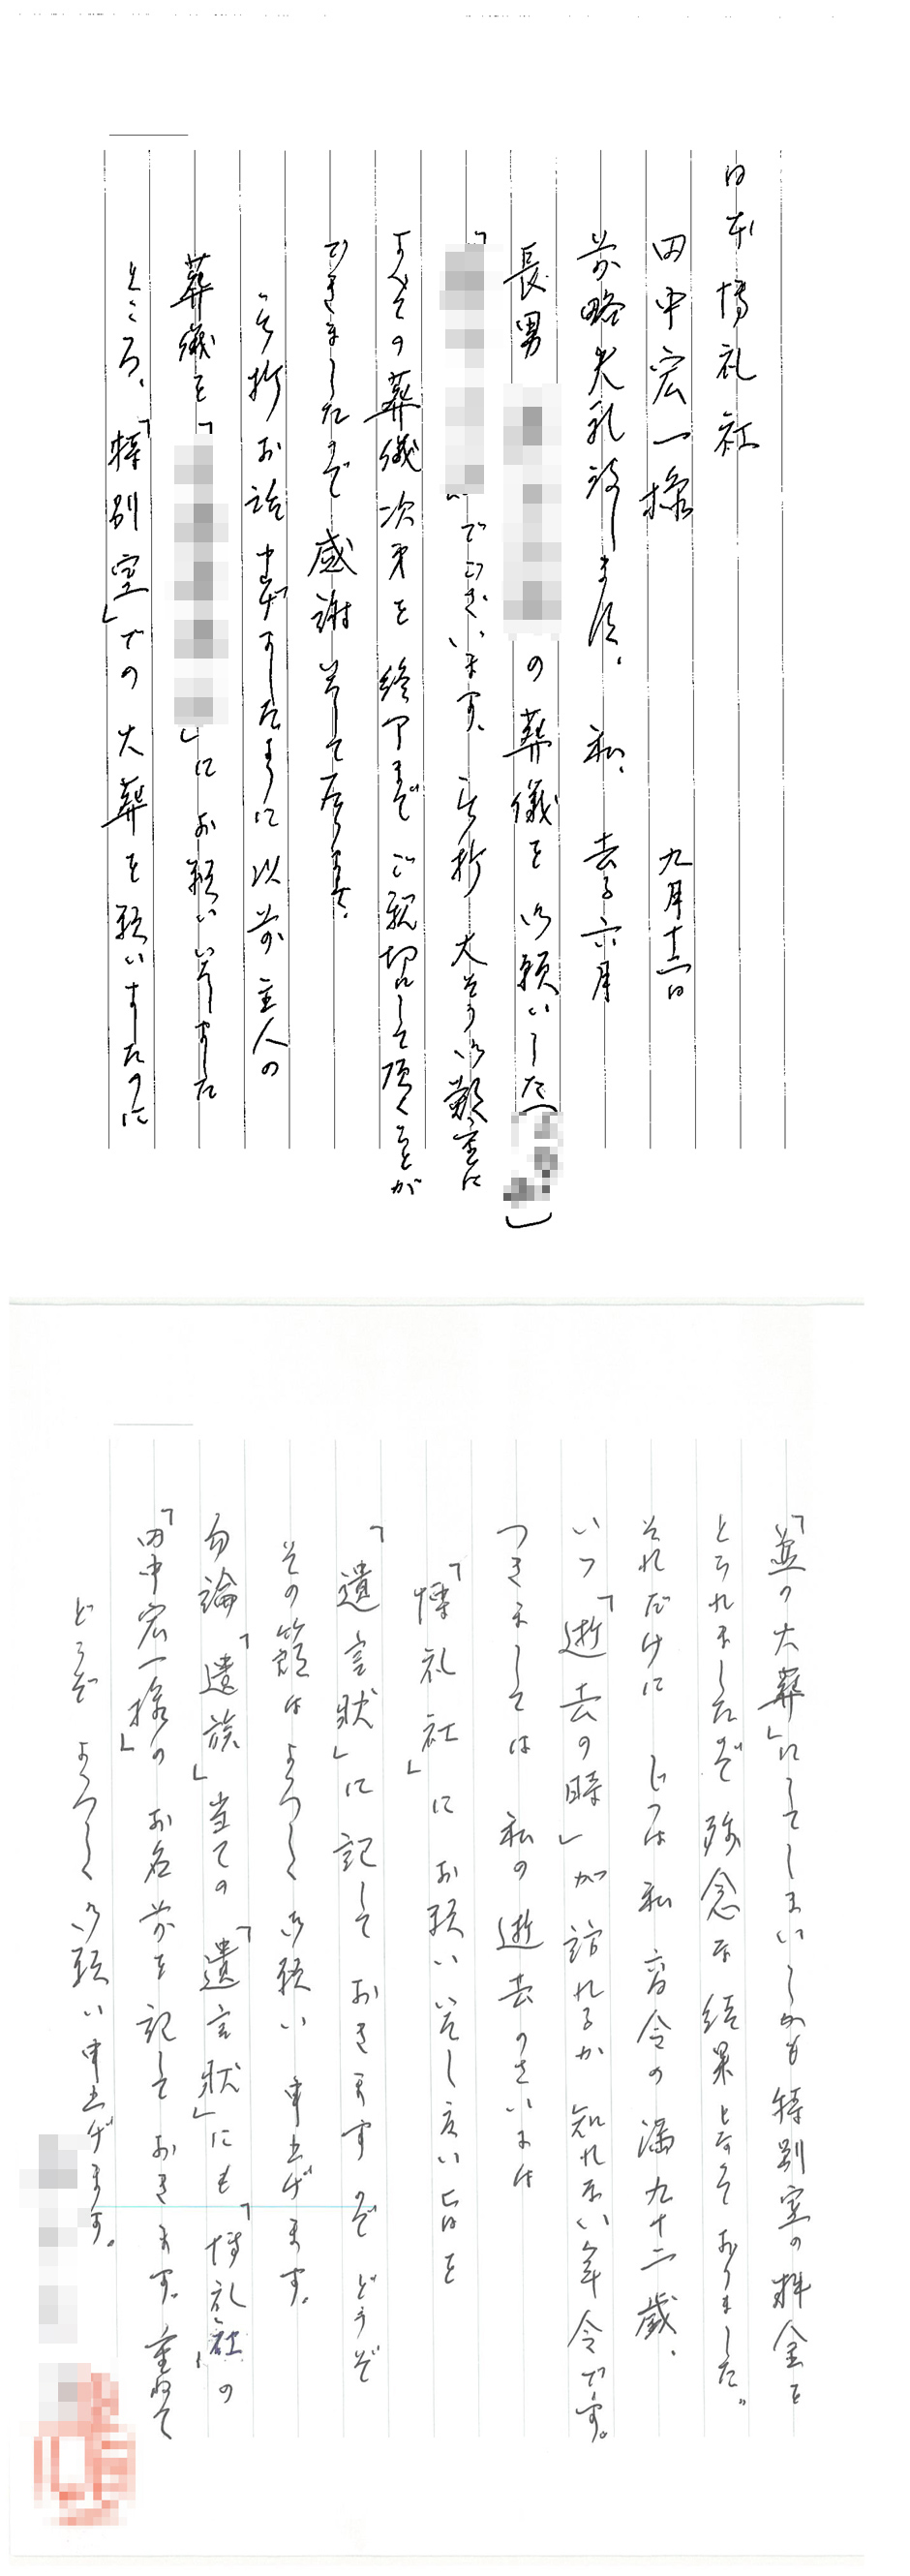 日本博礼社
田中宏一様　九月十三日
前略失礼致します。私、去る六月
長男　の葬儀を御願いした(　)
「　」でございます。その折大そう御鄭重に
すべての葬儀次第を終了までご親切にして頂くことが
できましたので感謝そして居ります。
その折お話申上げましたように以前主人の
葬儀を「　」にお願いいたしました
ところ、「特別室」での火葬を願いましたのに
「並の火葬」にしてしまいしかも特別室の料金を
とられましたので残念な結果となっておりました。
それだけに　じつは私　高令の満九十二歳、
いつ「逝去の時」が訪れるか知れない年令です。
つきましては　私の逝去のさいには
「博礼社」にお願い致し度い旨を
「遺言状」に記しておきますのでどうぞ
その節はよろしく御願い申上げます。
勿論「遺族」当ての「遺言状」にも「博礼社」の
「田中宏一様」のお名前を記しておきます。重ねて
どうぞよろしく御願い申上げます。